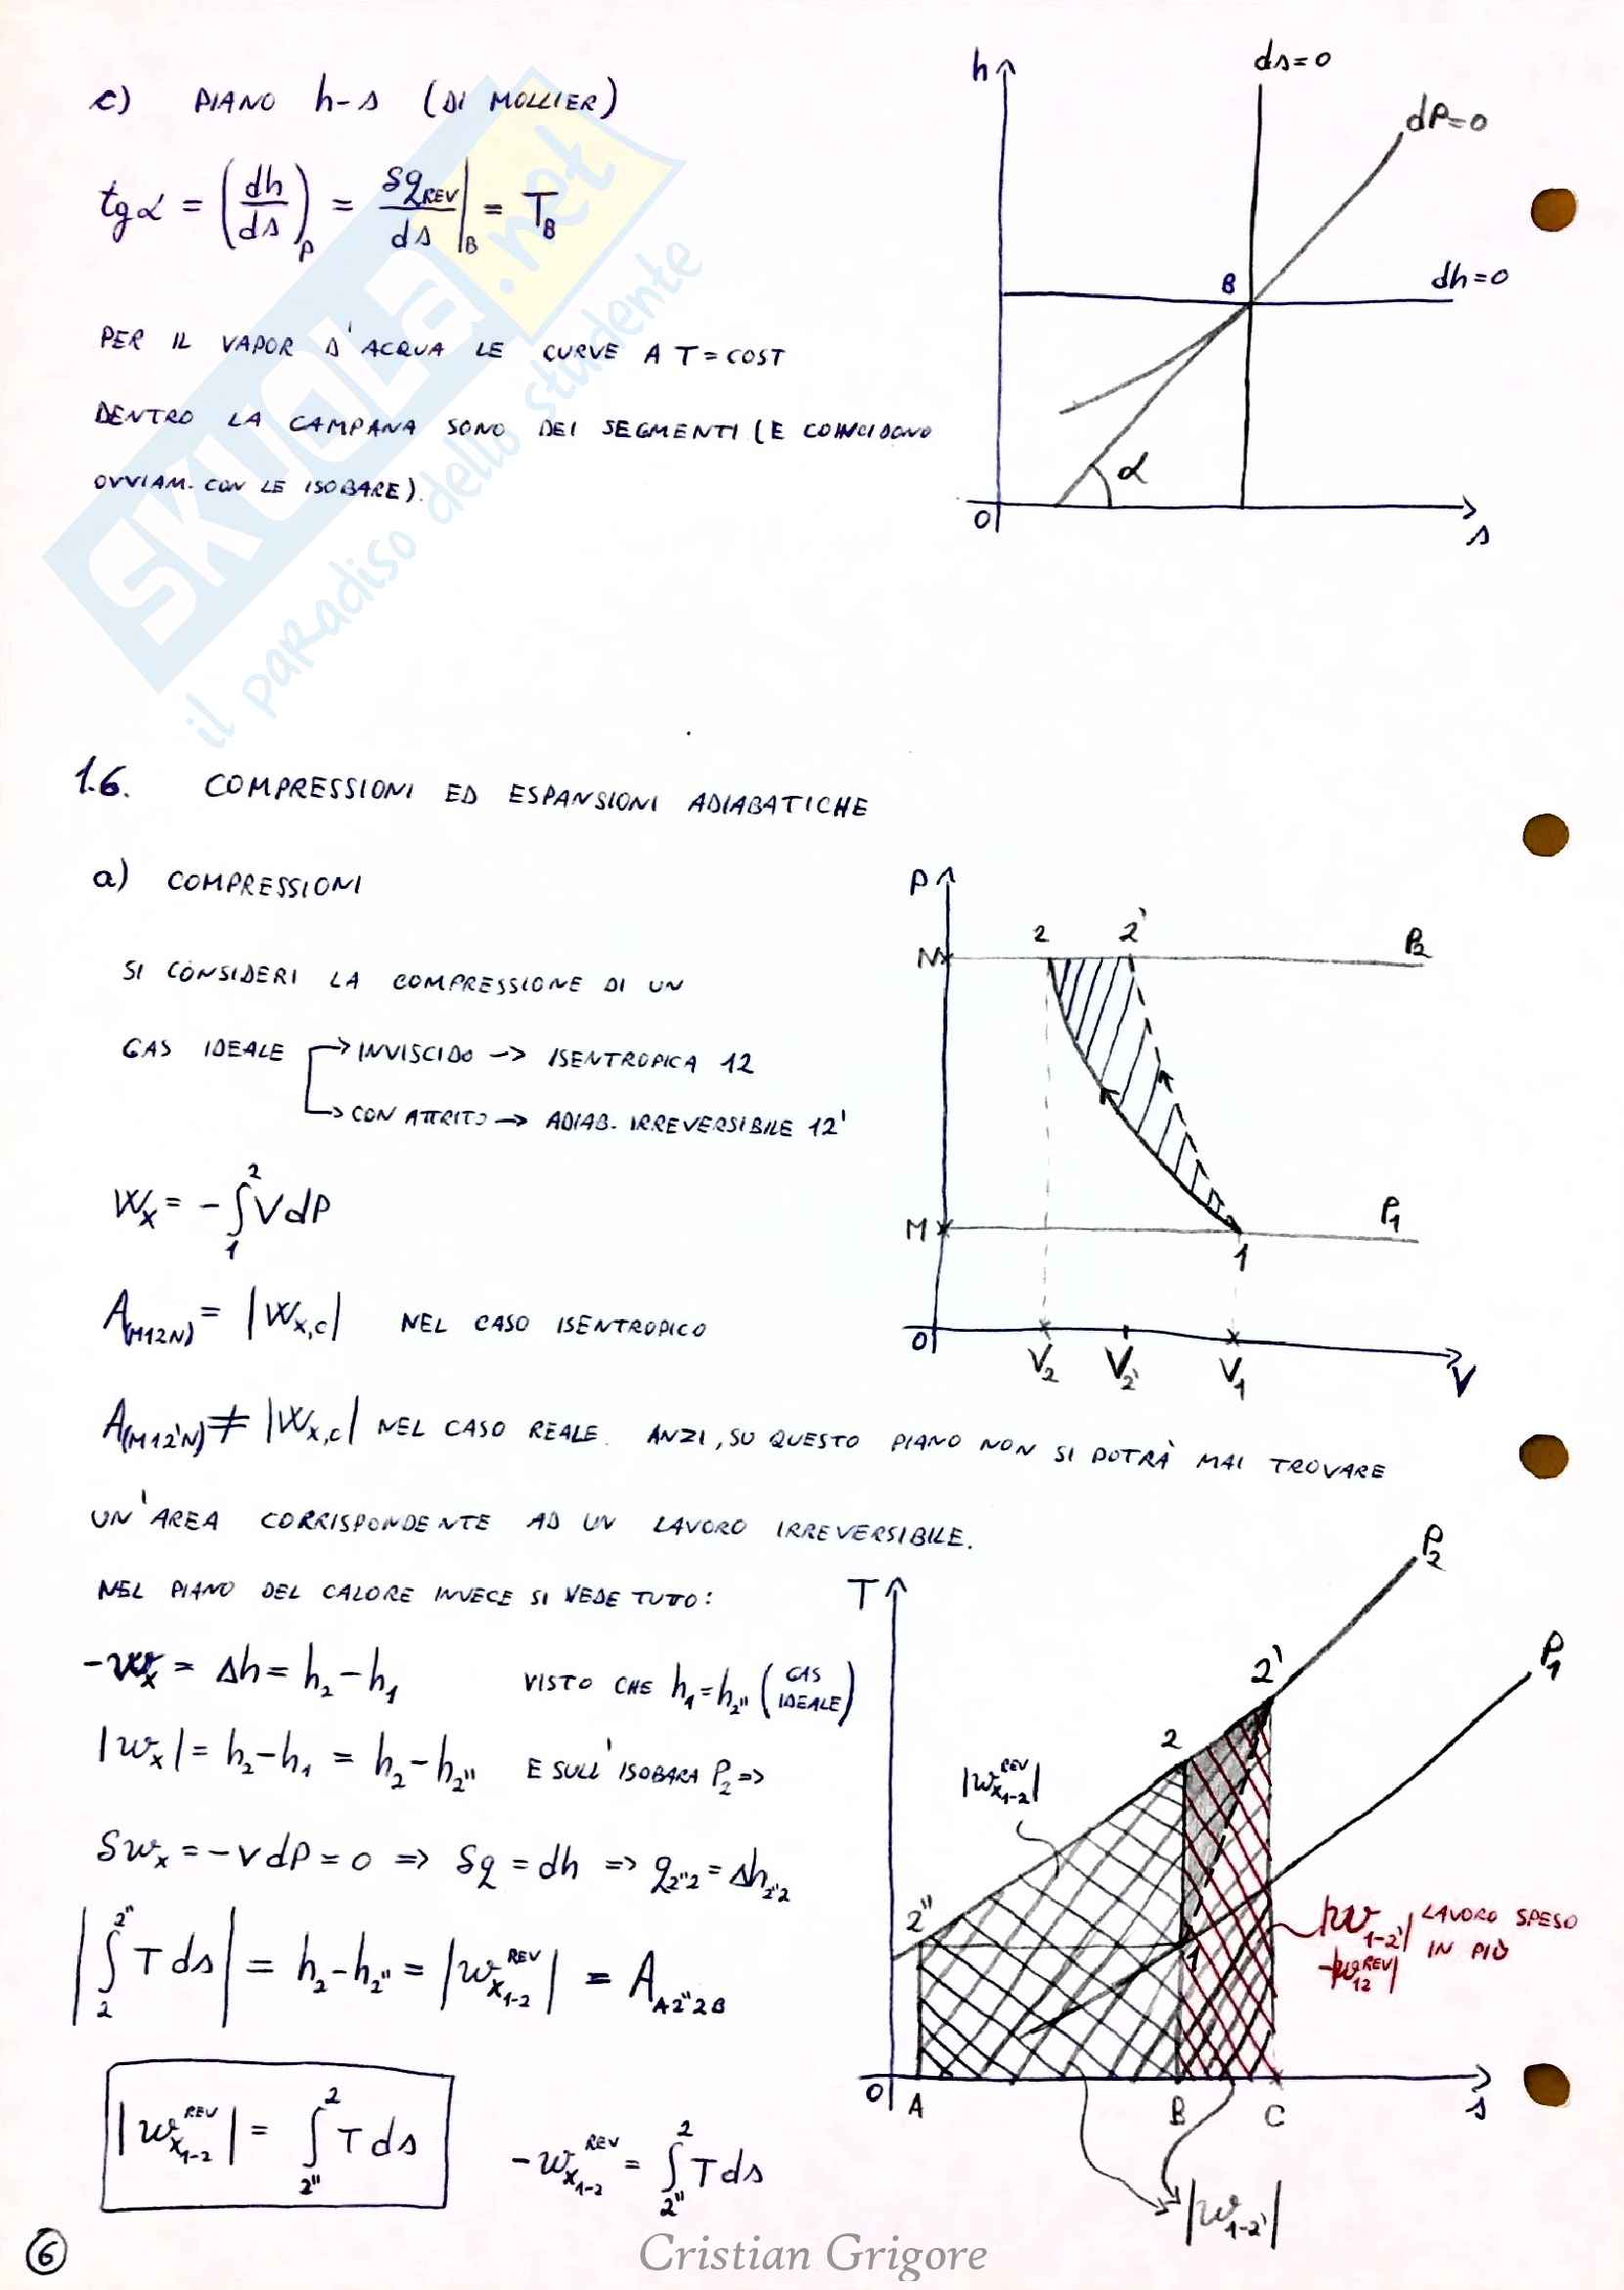 c) PIANO h-s (DI MOLLIER)
tgα = (dh/ds)_P = δq_REV/ds |_B = T_B
PER IL VAPOR D'ACQUA LE CURVE A T=COST
DENTRO LA CAMPANA SONO DEI SEGMENTI (E COINCIDONO
OVVIAM. CON LE ISOBARE).
h
ds=0
dP=0
dh=0
B
α
0
s
SKUOLA.net
il paradiso dello studente
1.6. COMPRESSIONI ED ESPANSIONI ADIABATICHE
a) COMPRESSIONI
SI CONSIDERI LA COMPRESSIONE DI UN
GAS IDEALE → INVISCIDO → ISENTROPICA 12
→ CON ATTRITO → ADIAB. IRREVERSIBILE 12'
W_x = - ∫_1^2 V dP
A_(M12N) = |W_x,c| NEL CASO ISENTROPICO
P
N
2
2'
P_2
M
P_1
1
0
V_2
V_2'
V_1
V
A_(M12'N) ≠ |W_x,c| NEL CASO REALE. ANZI, SU QUESTO PIANO NON SI POTRÀ MAI TROVARE
UN'AREA CORRISPONDENTE AD UN LAVORO IRREVERSIBILE.
NEL PIANO DEL CALORE INVECE SI VEDE TUTTO:
-w_x = Δh = h_2 - h_1 VISTO CHE h_1 = h_2'' (GAS IDEALE)
|w_x| = h_2 - h_1 = h_2 - h_2'' E SULL'ISOBARA P_2 =>
δw_x = -v dP = 0 => δq = dh => q_2''2 = Δh_2''2
|∫_2^2'' T ds| = h_2 - h_2'' = |w_x1-2^REV| = A_A2''2B
|w_x1-2^REV| = ∫_2''^2 T ds
-w_x1-2^REV = ∫_2''^2 T ds
T
P_2
P_1
2'
2
|w_x1-2^REV|
2''
1
|w_1-2'| LAVORO SPESO
-|w_12^REV| IN PIÙ
0
A
B
C
s
|w_1-2'|
6
Cristian Grigore